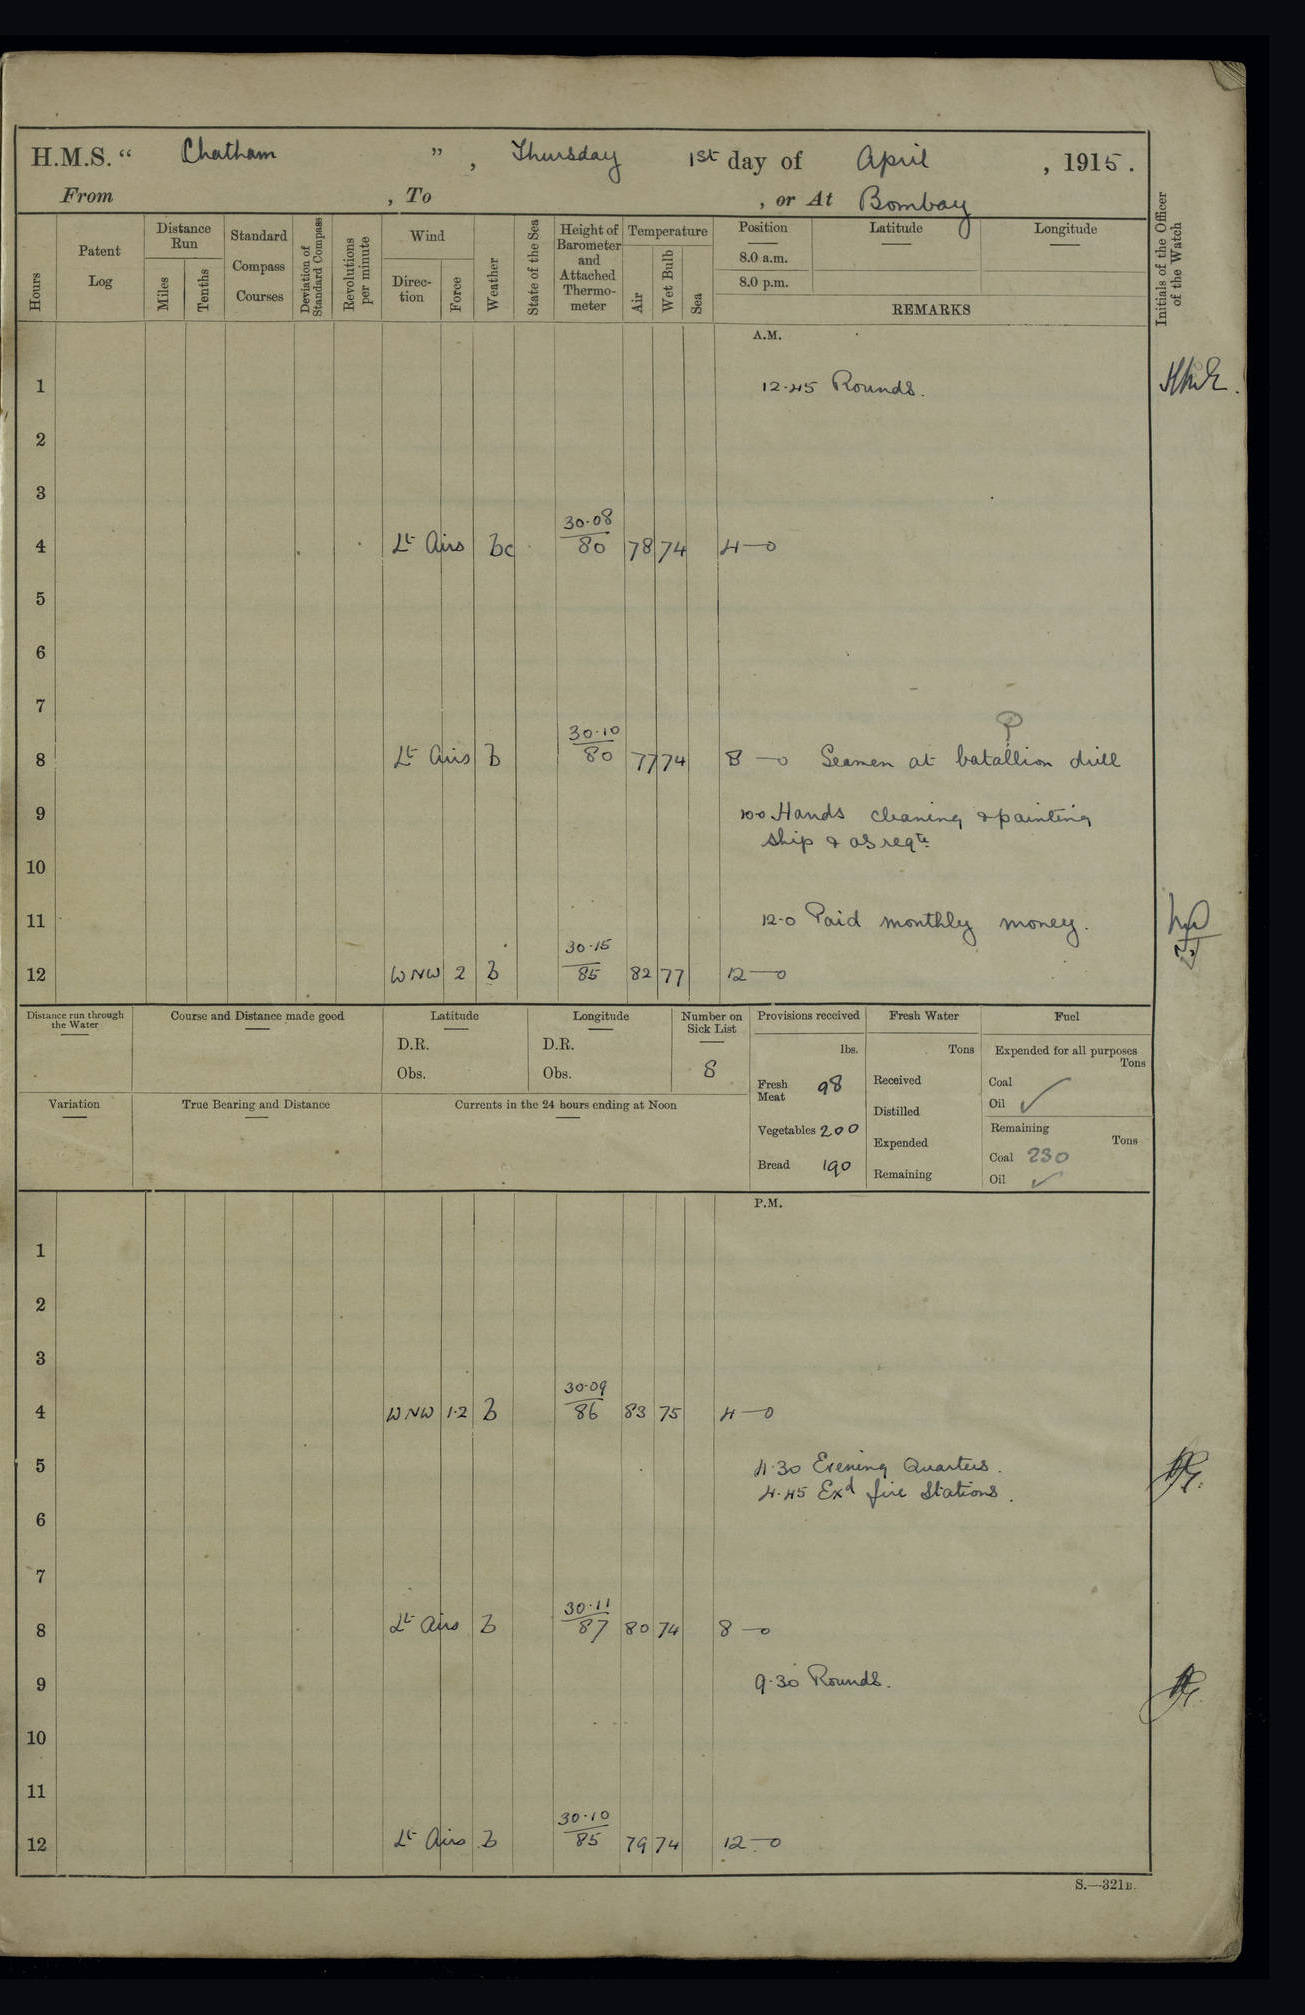 H.M.S. “ Chatham ” , Thursday 1st day of April , 1915.
From , To , or At Bombay
Hours
Patent Log
Distance Run
Miles
Tenths
Standard Compass Courses
Deviation of Standard Compass
Revolutions per minute
Wind
Direc-tion
Force
Weather
State of the Sea
Height of Barometer and Attached Thermo-meter
Temperature
Air
Wet Bulb
Sea
Position
8.0 a.m.
8.0 p.m.
Latitude
Longitude
REMARKS
Initials of the Officer of the Watch
A.M.
1 12.45 Rounds.
2
3
30.08
4 Lt Airs bc 80 78 74 4—0
5
6
7
30.10
8 Lt Airs b 80 77 74 8—0 Seamen at batallion drill
9 10.0 Hands cleaning & painting
ship & as reqte.
10
11 12.0 Paid monthly money.
30.15
12 WNW 2 b 85 82 77 12—0
Distance run through the Water
Course and Distance made good
Latitude
D.R.
Obs.
Longitude
D.R.
Obs.
Number on Sick List
8
Provisions received
lbs.
Fresh Meat 98
Vegetables 200
Bread 190
Fresh Water
Tons
Received
Distilled
Expended
Remaining
Fuel
Expended for all purposes
Tons
Coal
Oil ✓
Remaining
Tons
Coal 230
Oil ✓
Variation
True Bearing and Distance
Currents in the 24 hours ending at Noon
P.M.
1
2
3
30.09
4 WNW 1.2 b 86 83 75 4—0
5 4.30 Evening Quarters.
4.45 Exd fire Stations.
6
7
30.11
8 Lt Airs b 87 80 74 8—0
9 9.30 Rounds.
10
11
30.10
12 Lt Airs b 85 79 74 12—0
S.—321B.